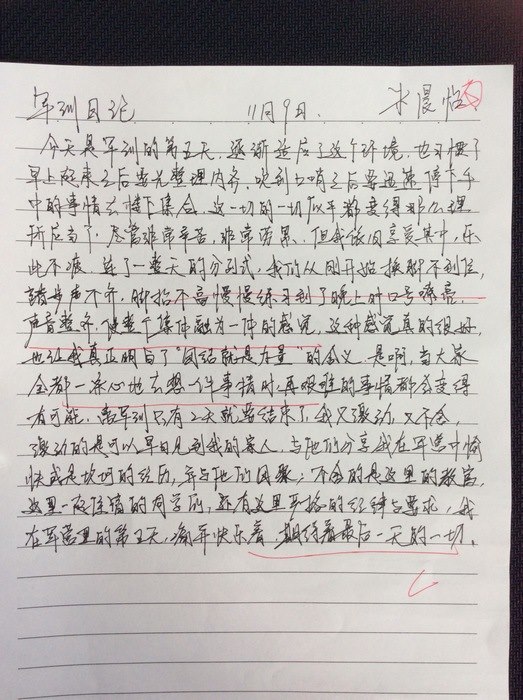 军训日记 11月9日. 米晨怡
今天是军训的第五天，逐渐适应了这个环境，也习惯了
早上起来之后要先整理内务，听到口哨之后要迅速停下手
中的事情去楼下集合，这一切的一切似乎都变得那么理
所应当了，尽管非常辛苦，非常劳累，但我依旧享受其中，乐
此不疲，练了一整天的分列式，我们从刚开始摆臂不到位，
踏步声不齐，脚抬不高慢慢练习到了晚上时口号嘹亮，
声音整齐，使整个集体融为一体的感觉，这种感觉真的很好，
也让我真正明白了“团结就是力量”的含义，是啊，当大家
全都一条心地去想一件事情时，再艰难的事情都会变得
有可能，离军训只有2天就要结束了，我又激动，又不舍，
激动的是可以早日见到我的家人，与他们分享我在军营中愉
快或是坎坷的经历，并与他们团聚；不舍的是这里的教官，
这里一夜陪伴的同学们，还有这里严格的纪律与要求，我
在军营里的第五天，痛并快乐着，期待着最后一天的一切。